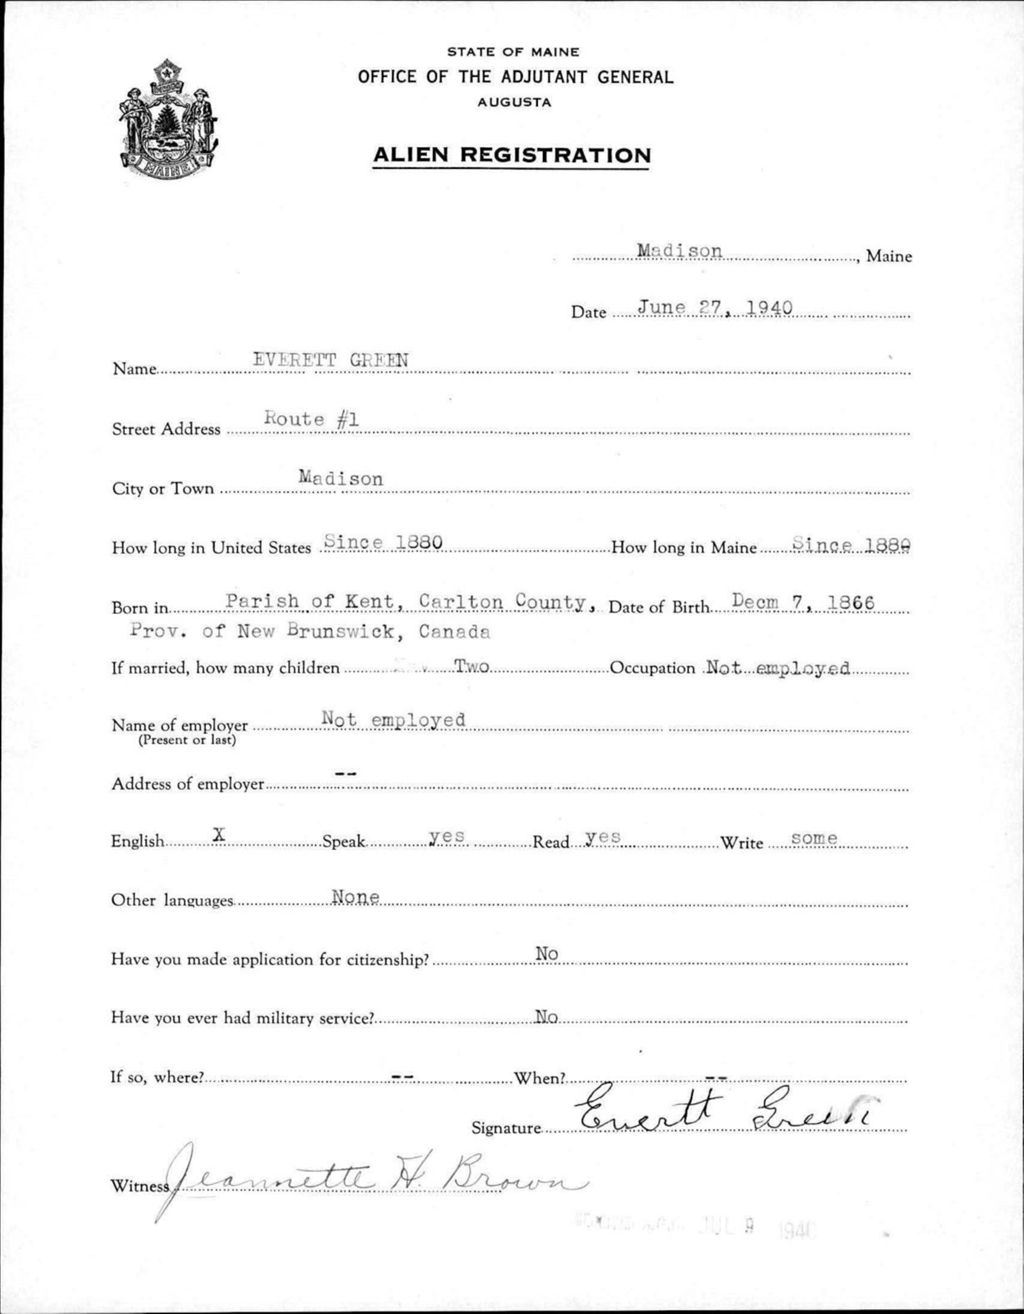 STATE OF MAINE
OFFICE OF THE ADJUTANT GENERAL
AUGUSTA
ALIEN REGISTRATION
MAINE
Madison, Maine
Date June 27, 1940
Name EVERETT GREEN
Street Address Route #1
City or Town Madison
How long in United States Since 1880 How long in Maine Since 1880
Born in Parish of Kent, Carlton County, Date of Birth Decm 7, 1866
Prov. of New Brunswick, Canada
If married, how many children Two Occupation Not employed
Name of employer Not employed
(Present or last)
Address of employer --
English X Speak yes Read yes Write some
Other languages None
Have you made application for citizenship? No
Have you ever had military service? No
If so, where? -- When? --
Signature Everett Green
Witness Jeannette H. Brown
JUL 9 1940